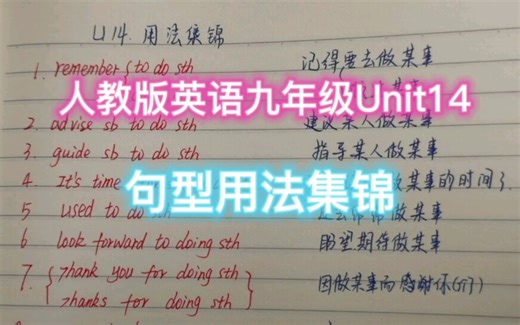 U14. 用法集锦
1. remember { to do sth 记得要去做某事
人教版英语九年级Unit14
2. advise sb to do sth 建议某人做某事
3. guide sb to do sth 指导某人做某事
4. It's time 某事的时间了.
句型用法集锦
5 used to do sth 做某事
6 look forward to doing sth 盼望期待做某事
7. { Thank you for doing sth 因做某事而感谢你(们)
thanks for doing sth